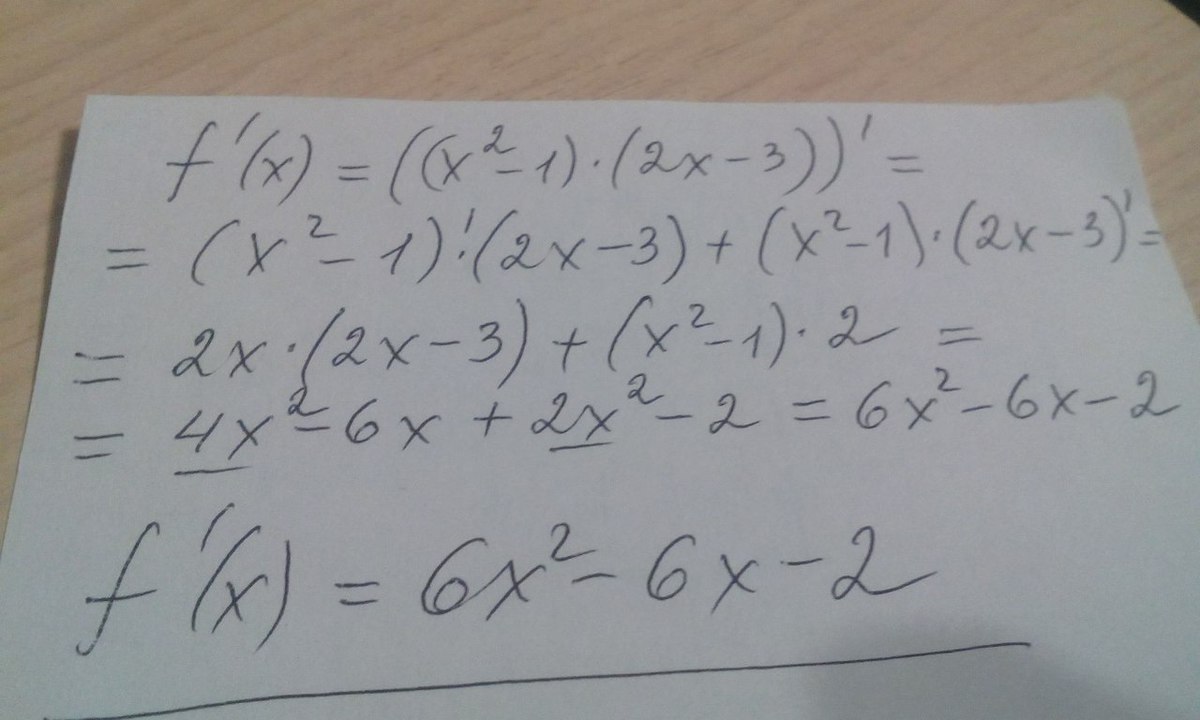 f'(x) = ((x²-1)·(2x-3))' =
= (x²-1)'·(2x-3) + (x²-1)·(2x-3)' =
= 2x·(2x-3) + (x²-1)·2 =
= 4x²-6x + 2x²-2 = 6x²-6x-2
f'(x) = 6x²-6x-2